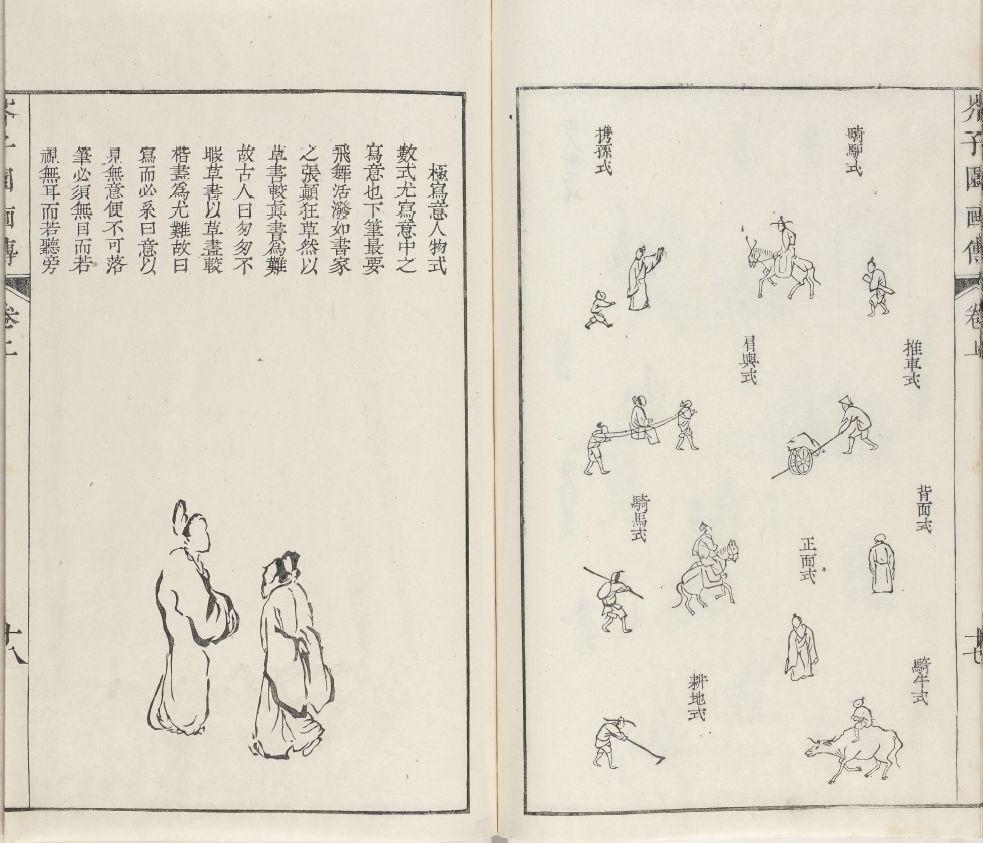 芥子園画傳
卷上
十七
騎驢式
推車式
背面式
騎牛式
正面式
肩輿式
騎馬式
耕地式
携孫式
極寫意人物式
數式尤寫意中之
寫意也下筆最要
飛舞活潑如書家
之張顛狂草然以
草書較眞書為難
故古人曰匆匆不
暇草書以草畫較
楷畫為尤難故曰
寫而必系曰意以
見無意便不可落
筆必須無目而若
視無耳而若聽旁
十八